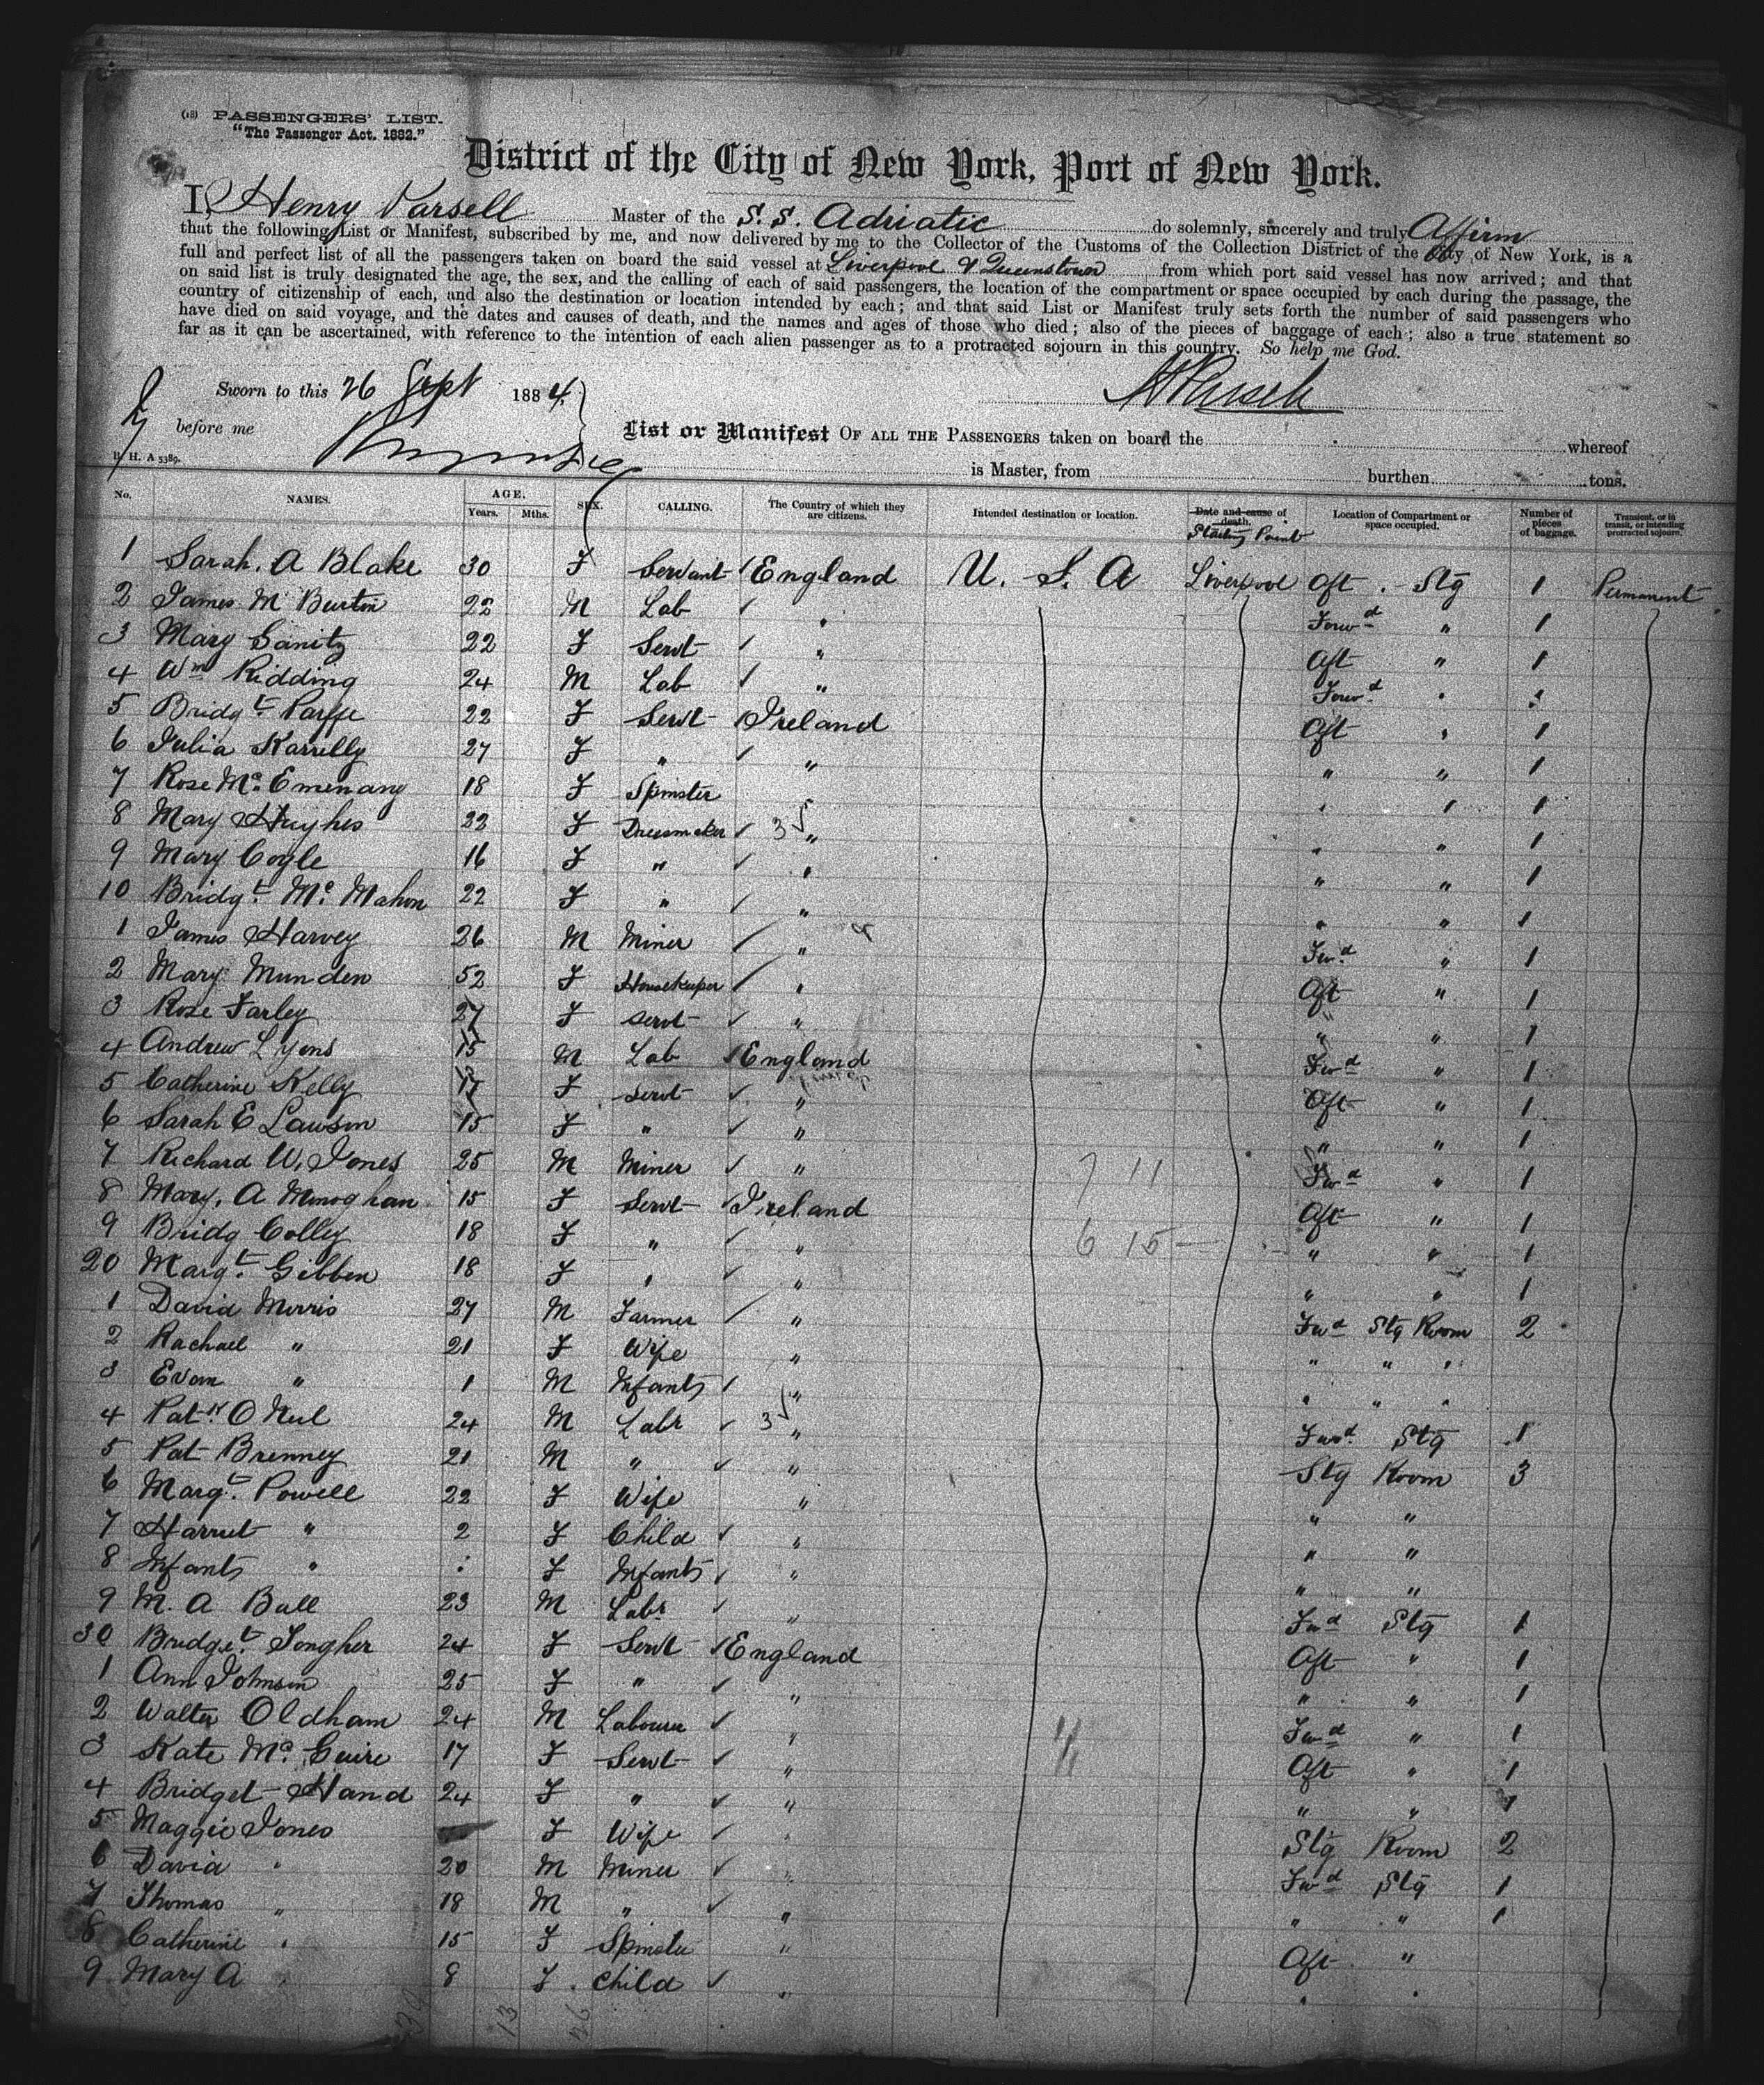 (18) PASSENGERS' LIST.
"The Passenger Act. 1882."
District of the City of New York, Port of New York.
I, Henry Parsell Master of the S.S. Adriatic do solemnly, sincerely and truly Affirm
that the following List or Manifest, subscribed by me, and now delivered by me to the Collector of the Customs of the Collection District of the City of New York, is a
full and perfect list of all the passengers taken on board the said vessel at Liverpool & Queenstown from which port said vessel has now arrived; and that
on said list is truly designated the age, the sex, and the calling of each of said passengers, the location of the compartment or space occupied by each during the passage, the
country of citizenship of each, and also the destination or location intended by each; and that said List or Manifest truly sets forth the number of said passengers who
have died on said voyage, and the dates and causes of death, and the names and ages of those who died; also of the pieces of baggage of each; also a true statement so
far as it can be ascertained, with reference to the intention of each alien passenger as to a protracted sojourn in this country. So help me God.
Sworn to this 26 Sept 1884.
H Parsell
before me
List or Manifest OF ALL THE PASSENGERS taken on board the whereof
B. H. A 5389.
is Master, from burthen tons.
No. NAMES. AGE. Years. Mths. SEX. CALLING. The Country of which they are citizens. Intended destination or location. Date and cause of death. Starting Point Location of Compartment or space occupied. Number of pieces of baggage. Transient, or in transit, or intending protracted sojourn.
1 Sarah. A Blake 30 F Servant England U. S. A Liverpool Aft . Stg 1 Permanent
2 James M Burtin 22 M Lab " Forwd " 1
3 Mary Sanitz 22 F Servt " Aft " 1
4 Wm Ridding 24 M Lab " Forwd "
5 Bridgt 22 F Servt Ireland Aft " 1
6 Julia Karrelly 27 F " " " " 1
7 Rose Mc Emenany 18 F Spinster " " 1
8 Mary Hughes 22 F Dressmaker 3 " " " 1
9 Mary Coyle 16 F " " " " 1
10 Bridgt Mc Mahon 22 F " " " " 1
1 James Harvey 26 M Miner " Fwd " 1
2 Mary Munden 52 F Housekeeper " Aft " 1
3 Rose Farley 27 F Servt " " " 1
4 Andrew Lyons 15 M Lab England Fwd " 1
5 Catherine Kelly 17 F Servt " Aft " 1
6 Sarah E Lawson 15 F " " " " 1
7 Richard W. Jones 25 M Miner " 7 11 Fwd " 1
8 Mary. A Monoghan 15 F Servt Ireland Aft " 1
9 Bridg Colley 18 F " " 6 15 " " 1
20 Margt Gibben 18 F " " " " 1
1 David Morris 27 M Farmer " Fwd Stg Room 2
2 Rachael " 21 F Wife " " " "
3 Evan " 1 M Infants " " " "
4 Patk O Neil 24 M Labr 3 " Fwd Stg 1
5 Pat Brenney 21 M " " Stg Room 3
6 Margt Powell 22 F Wife " " "
7 Harriet " 2 F Child " " "
8 Infants " F Infants " " "
9 M. A Ball 23 M Labr " Fwd Stg 1
30 Bridget Tongher 24 F Servt England Aft " 1
1 Ann Johnson 25 F " " " " 1
2 Walter Oldham 24 M Labourer " Fwd " 1
3 Kate Mc Guire 17 F Servt " Aft " 1
4 Bridget Hand 24 F " " " " 1
5 Maggie Jones F Wife " Stg Room 2
6 David " 20 M Miner " Fwd Stg 1
7 Thomas " 18 M " " " " 1
8 Catherine " 15 F Spinster " Aft "
9 Mary A " 8 F Child " " "
13